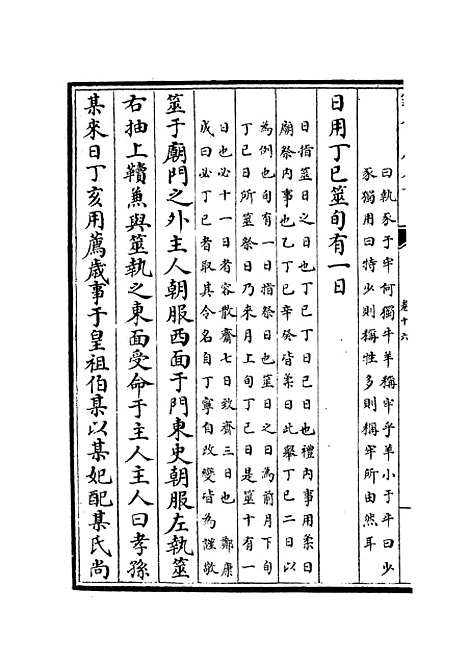 曰執豕于牢何獨牛羊稱牢乎羊小于牛曰少
豕獨用曰特少則稱牲多則稱牢所由然耳
日用丁巳筮旬有一日
日指筮日之日也丁巳丁日己日也禮內事用柔日
廟祭內事也乙丁巳辛癸皆柔日此舉丁巳二日以
為例也旬有一日指祭日也筮日之日為前月下旬
丁巳日所筮祭日乃來月上旬丁巳日是筮十有一
日也必十一日者容散齋七日致齋三日也 鄭康
成曰必丁巳者取其令名自丁寧自改變皆為謹敬
筮于廟門之外主人朝服西面于門東史朝服左執筮
右抽上韇兼與筮執之東面受命于主人主人曰孝孫
某來日丁亥用薦歲事于皇祖伯某以某妃配某氏尚
卷十六